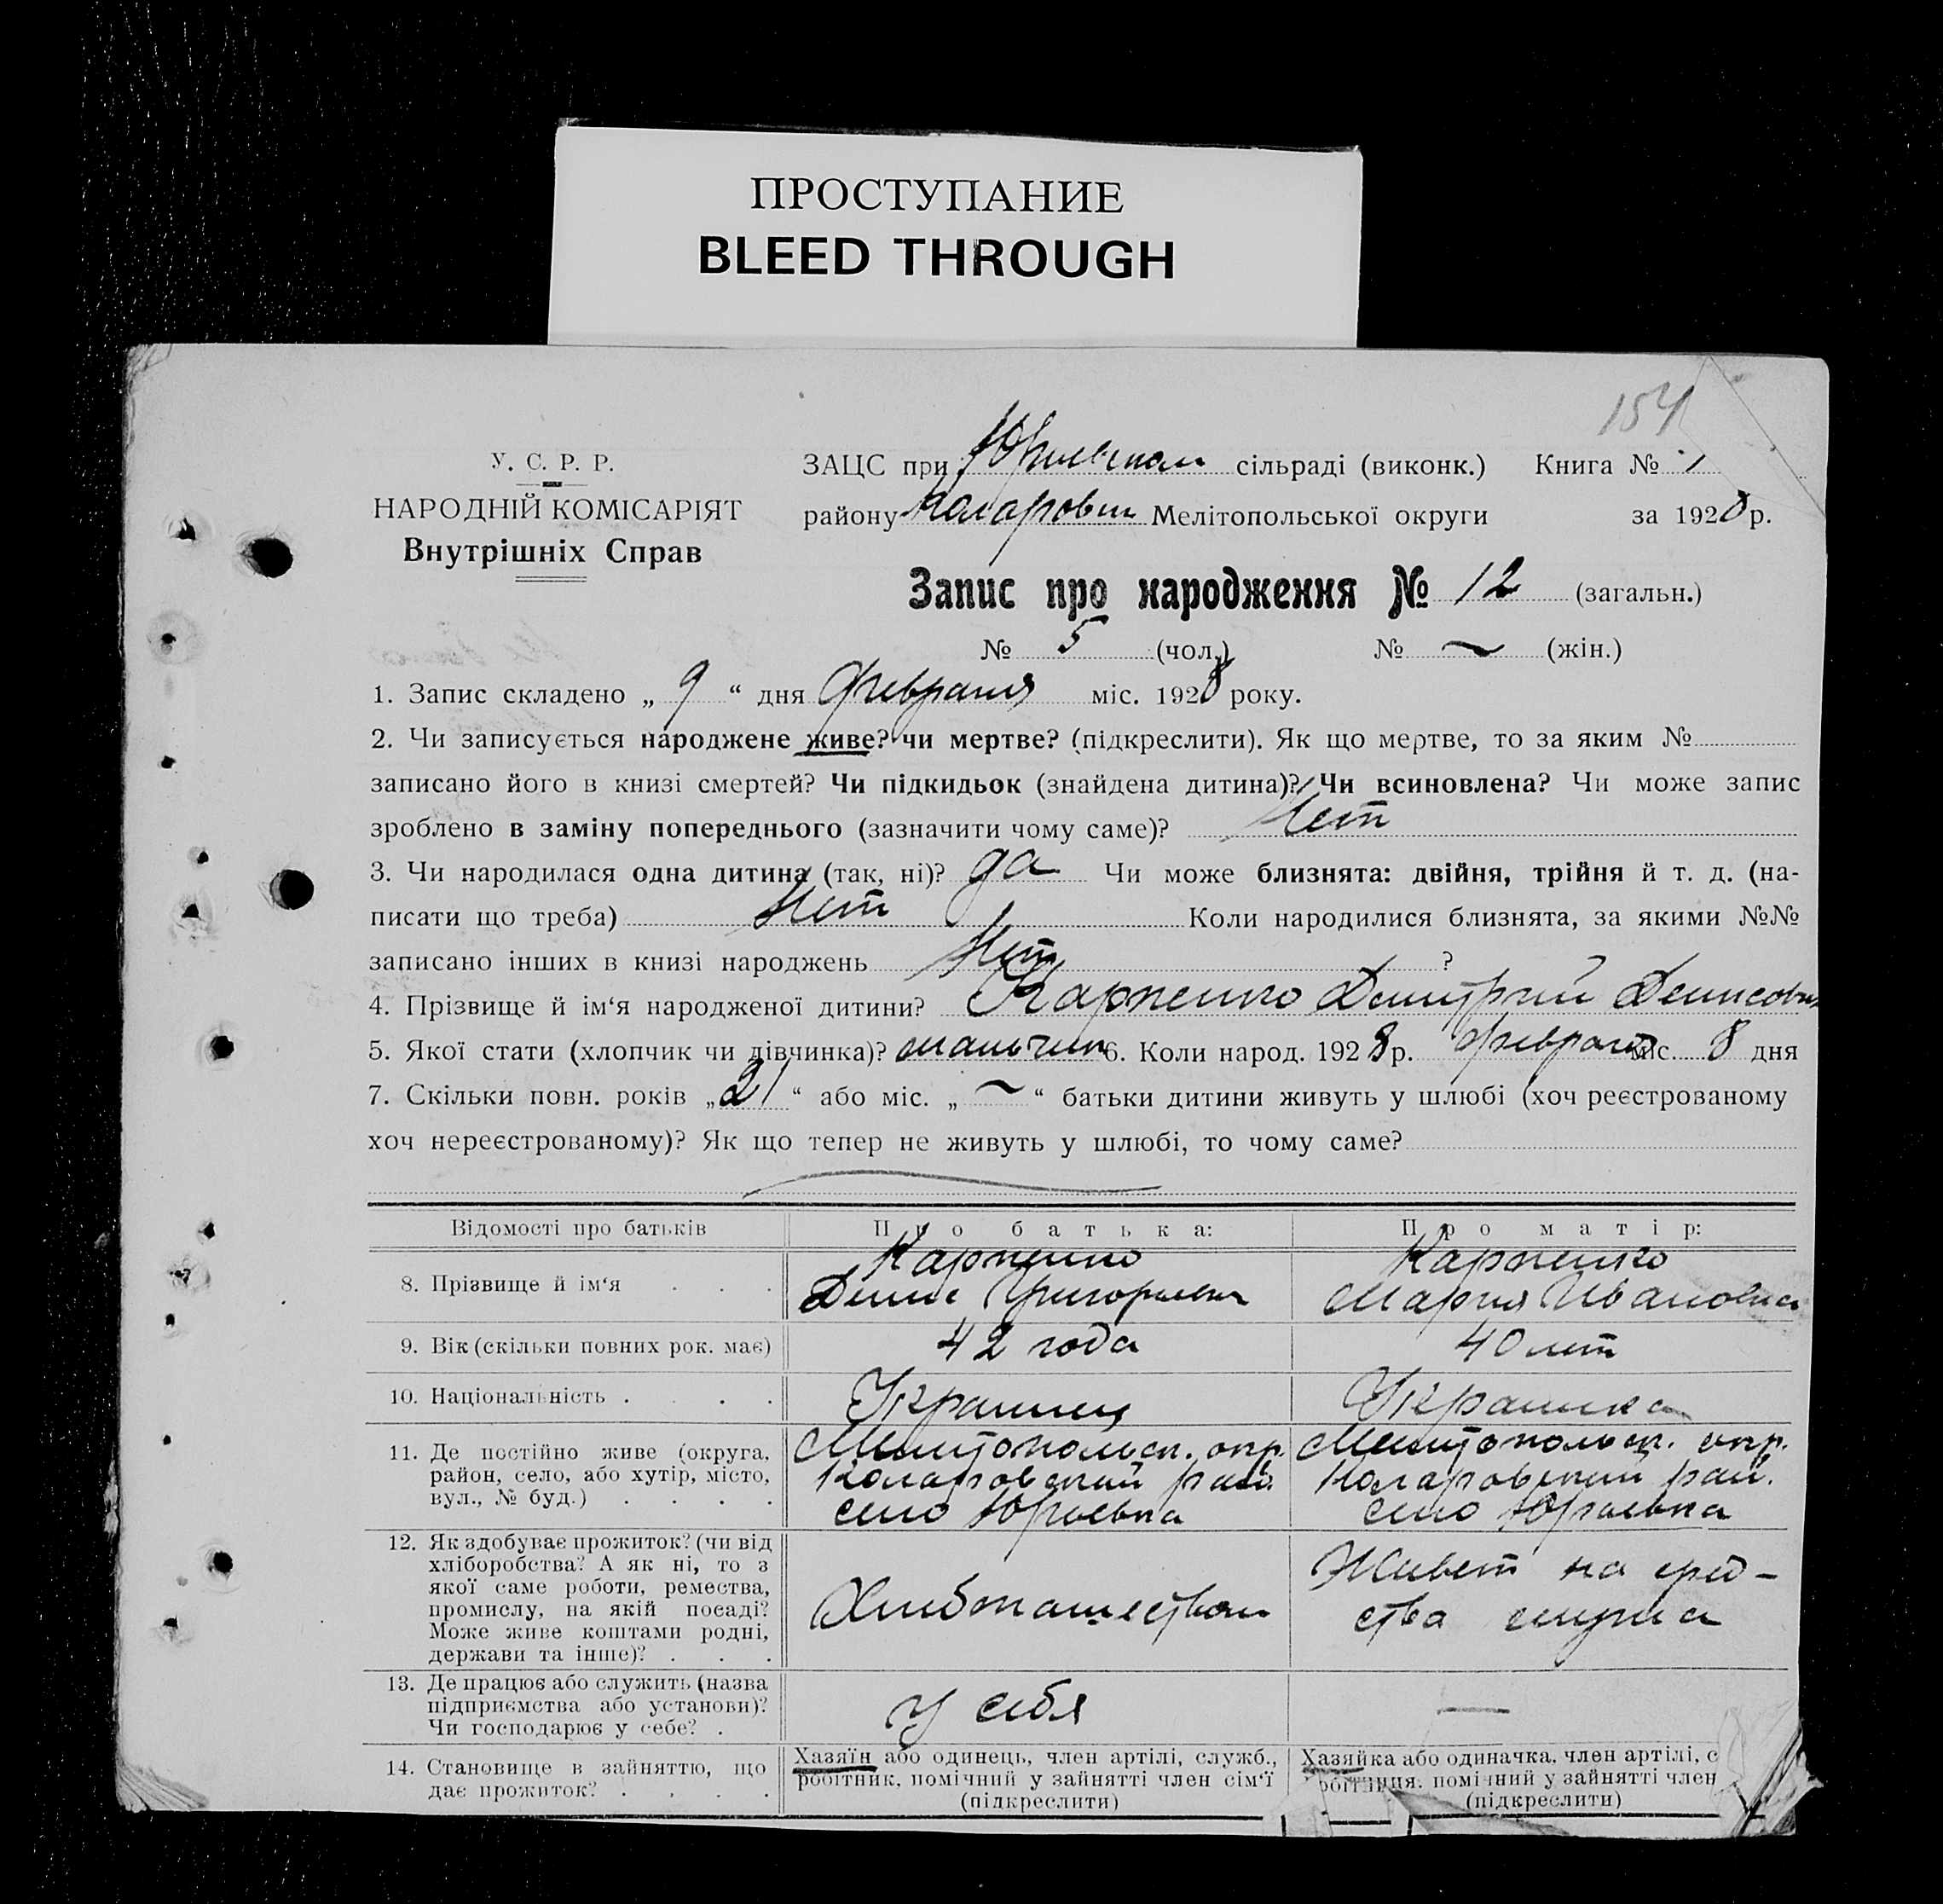 ПРОСТУПАНИЕ
BLEED THROUGH
154
У. С. Р. Р.
НАРОДНІЙ КОМІСАРІЯТ
Внутрішніх Справ
ЗАЦС при Юрьевском сільраді (виконк.) Книга № 1
району Коларовск Мелітопольської округи за 1928 р.
Запис про народження № 12 (загальн.)
№ 5 (чол.) № ~ (жін.)
1. Запис складено „ 9 “ дня февраля міс. 1928 року.
2. Чи записується народжене живе? чи мертве? (підкреслити). Як що мертве, то за яким №
записано його в книзі смертей? Чи підкидьок (знайдена дитина)? Чи всиновлена? Чи може запис
зроблено в заміну попереднього (зазначити чому саме)? Нет
3. Чи народилася одна дитина (так, ні)? да Чи може близнята: двійня, трійня й т. д. (на-
писати що треба) Нет Коли народилися близнята, за якими №№
записано інших в книзі народжень Нет ?
4. Прізвище й ім‘я народженої дитини? Карпенко Димутрий Денисович
5. Якої стати (хлопчик чи дівчинка)? мальчик 6. Коли народ. 1928 р. февраля міс. 8 дня
7. Скільки повн. років „ 21 “ або міс. „ ~ “ батьки дитини живуть у шлюбі (хоч реєстрованому
хоч нереєстрованому)? Як що тепер не живуть у шлюбі, то чому саме?
Відомості про батьків Про батька: Про матір:
8. Прізвище й ім‘я . . .
Карпенко
Денис Григорьевич
Карпенко
Мария Ивановна
9. Вік (скільки повних рок. має) 42 года 40 лет
10. Національність . . . . Украинец Украинка
11. Де постійно живе (округа,
район, село, або хутір, місто,
вул., № буд.) . . . .
Мелитопольск. окр.
Коларовский рай.
село Юрьевка
Мелитопольск. окр.
Коларовский рай.
село Юрьевка
12. Як здобуває прожиток? (чи від
хліборобства? А як ні, то з
якої саме роботи, ремества,
промислу, на якій посаді?
Може живе коштами родні,
держави та інше)? . . .
Хлебопашеством
Живет на сред-
ства мужа
13. Де працює або служить (назва
підприємства або установи)?
Чи господарює у себе? .
У себя
—
14. Становище в зайняттю, що
дає прожиток? . . . .
Хазяїн або одинець, член артілі, служб.,
робітник, помічний у зайнятті член сім‘ї
(підкреслити)
Хазяйка або одиначка, член артілі, с
робітниця, помічний у зайнятті член
(підкреслити)